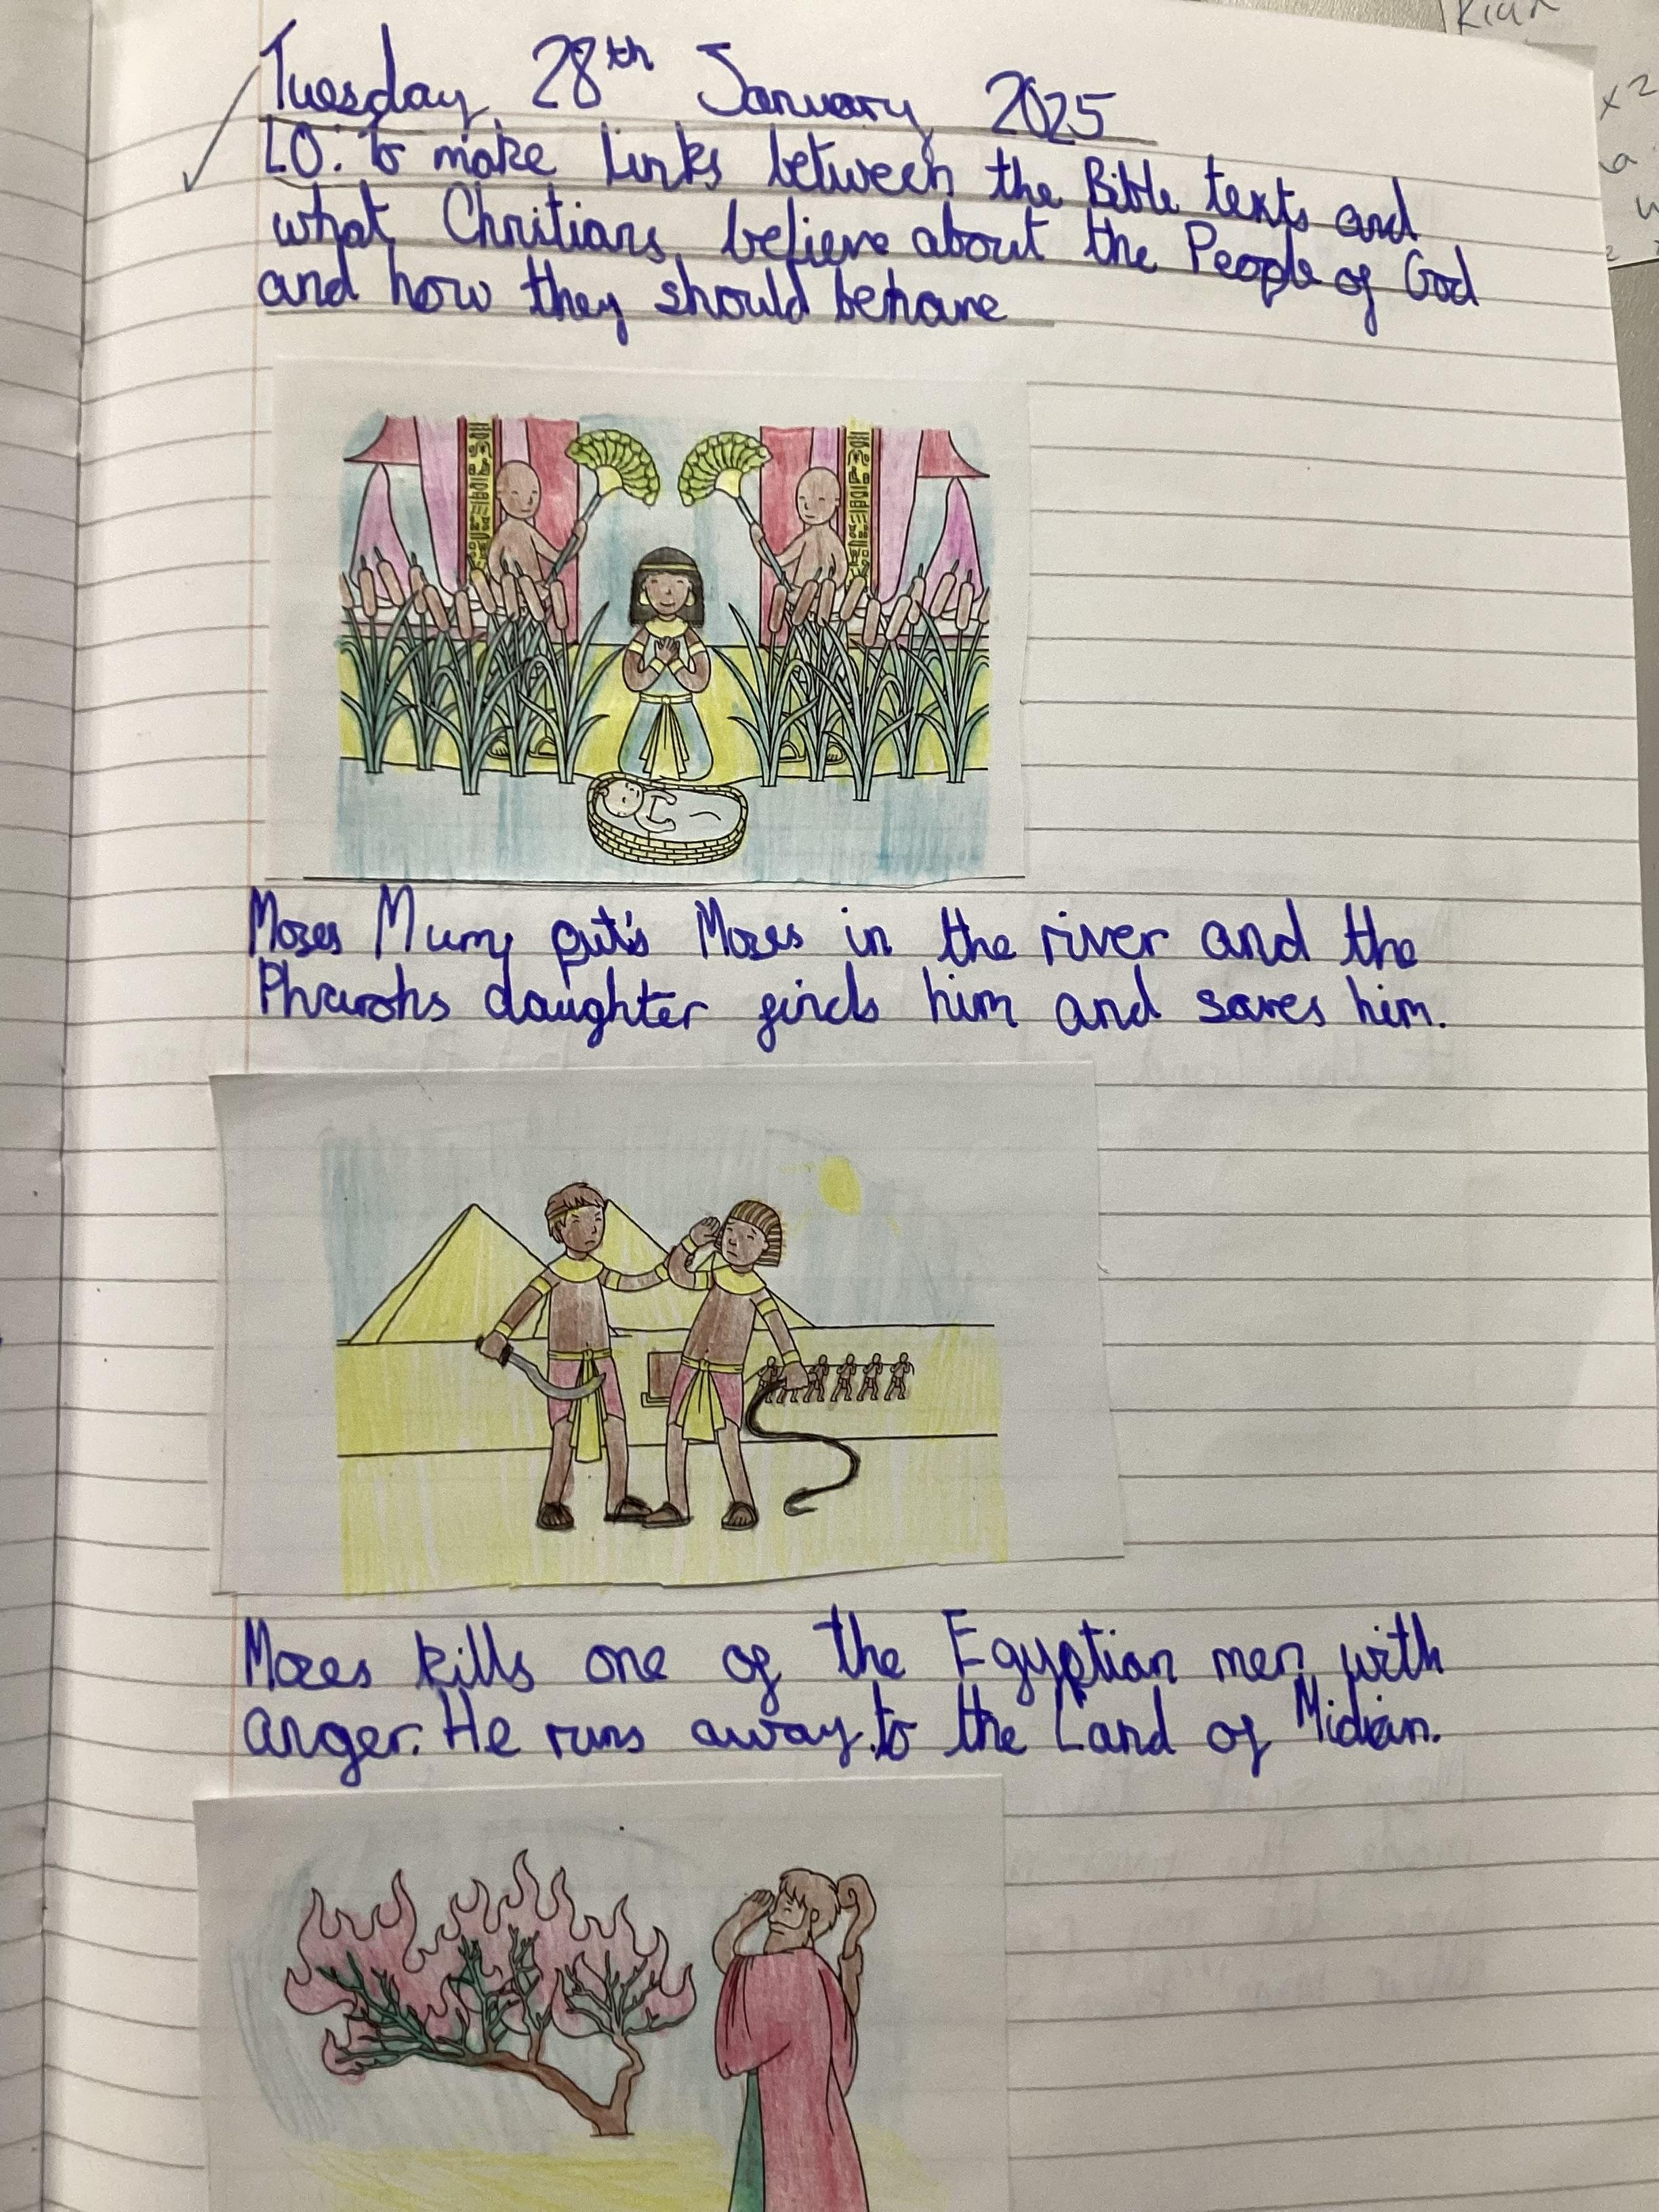 Tuesday 28th January 2025
LO: to make links between the Bible texts and
what Chritians believe about the People of God
and how they should behave
Moses Mum put's Moses in the river and the
Pharohs daughter finds him and saves him.
Moses kills one of the Egyptian men with
anger. He runs away to the Land of Midian.